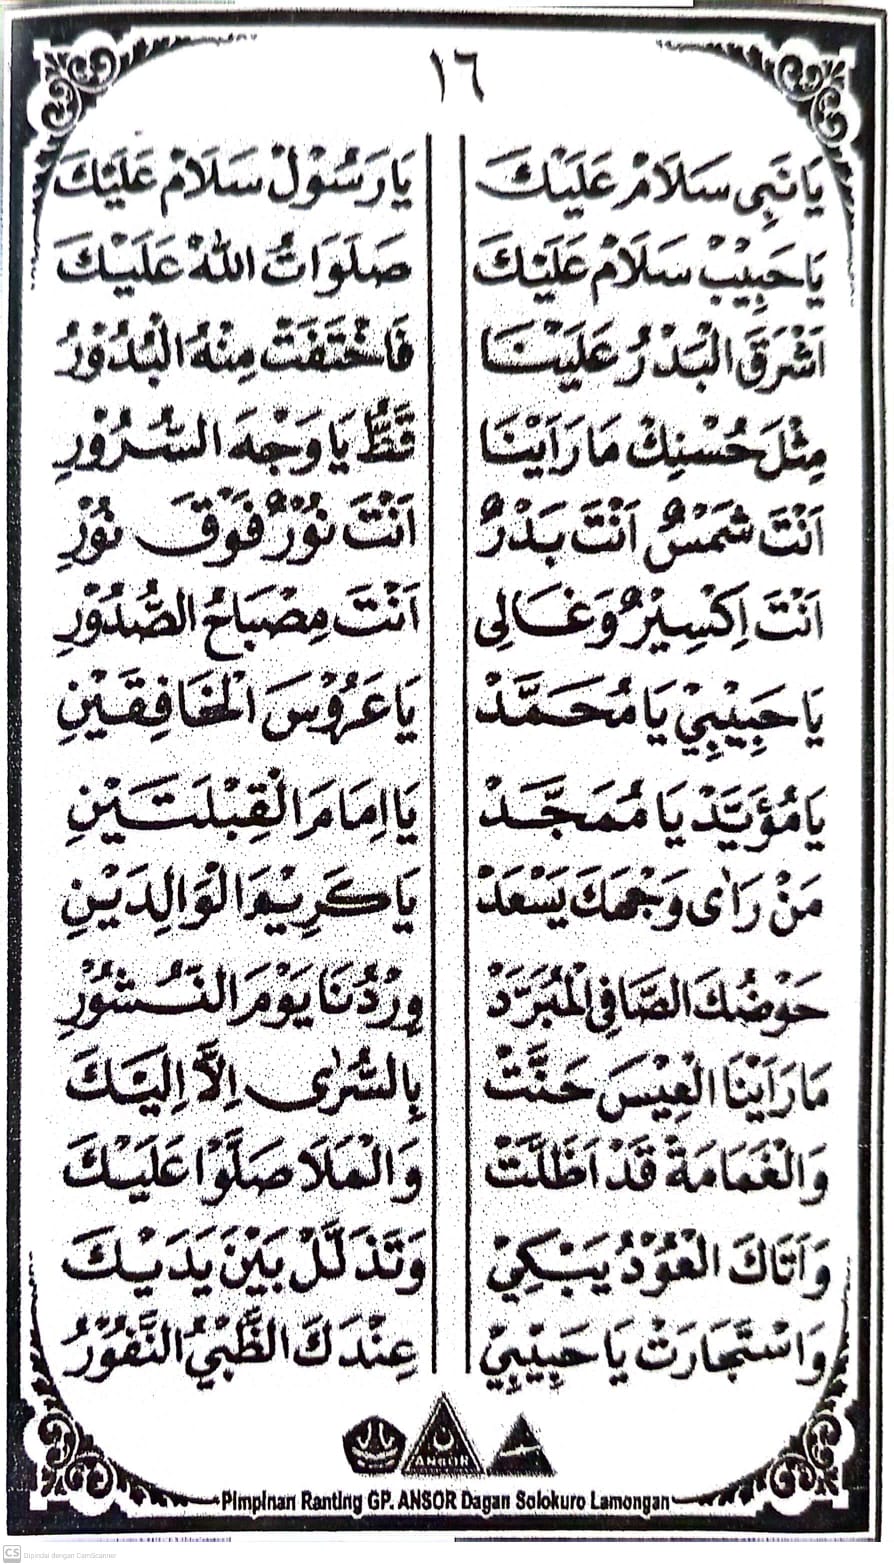 ١٦
يَانَبِى سَلَامْ عَلَيْكَ يَارَسُوْلْ سَلَامْ عَلَيْكَ
يَاحَبِيْبْ سَلَامْ عَلَيْكَ صَلَوَاتُ اللّٰهْ عَلَيْكَ
اَشْرَقَ الْبَدْرُ عَلَيْنَا فَاخْتَفَتْ مِنْهُ الْبُدُوْرُ
مِثْلَ حُسْنِكْ مَا رَاَيْنَا قَطُّ يَا وَجْهَ السُّرُوْرِ
اَنْتَ شَمْسٌ اَنْتَ بَدْرٌ اَنْتَ نُوْرٌ فَوْقَ نُوْرِ
اَنْتَ اِكْسِيْرٌ وَغَالِى اَنْتَ مِصْبَاحُ الصُّدُوْرِ
يَا حَبِيْبِيْ يَا مُحَمَّدْ يَا عَرُوْسَ الْخَافِقَيْنِ
يَا مُؤَيَّدْ يَا مُمَجَّدْ يَا اِمَامَ الْقِبْلَتَيْنِ
مَنْ رَاٰى وَجْهَكَ يَسْعَدْ يَا كَرِيْمَ الْوَالِدَيْنِ
حَوْضُكَ الصَّافِى الْمُبَرَّدْ وِرْدُنَا يَوْمَ النُّشُوْرِ
مَا رَاَيْنَا الْعِيْسَ حَنَّتْ بِالسُّرٰى اِلَّا اِلَيْكَ
وَالْغَمَامَةْ قَدْ اَظَلَّتْ وَالْمَلَا صَلَّوْا عَلَيْكَ
وَاَتَاكَ الْعُوْدُ يَبْكِيْ وَتَذَلَّلْ بَيْنَ يَدَيْكَ
وَاسْتَجَارَتْ يَا حَبِيْبِيْ عِنْدَكَ الظَّبْيُ النَّفُوْرُ
ANSOR
Pimpinan Ranting GP. ANSOR Dagan Solokuro Lamongan
CS Dipindai dengan CamScanner